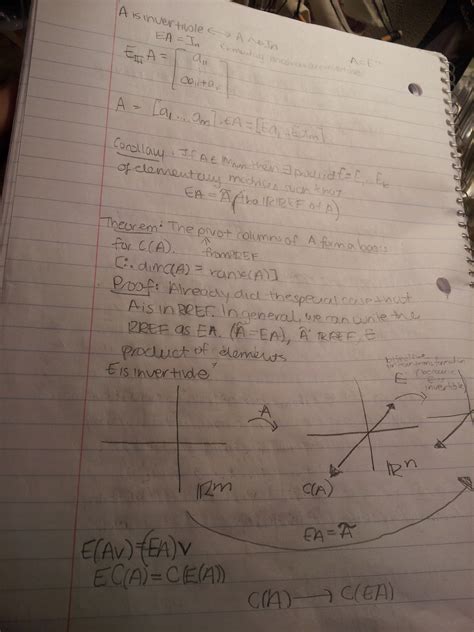 A is invertible ⟷ A ~ In
EA = In
A = E⁻¹
E A = [ a11
]
A = [a1 ... am], EA = [Ea1 ... Eam]
Corollary: If A ∈ then ∃ product E = E1 ... Ek
of elementary matrices such that
EA = Ã (the RREF of A)
Theorem: The pivot columns of A form a basis
for C(A). ↑ from RREF
[∴ dim C(A) = rank(A)]
Proof: Already did the special case that
A is in RREF. In general, we can write the
RREF as EA. (Ã = EA), Ã RREF, E
product of
E is invertible
E
invertible
A
ℝm
C(A)
ℝn
EA = Ã
E(Av) = (EA)v
E C(A) = C(E(A))
C(A) ⟶ C(EA)